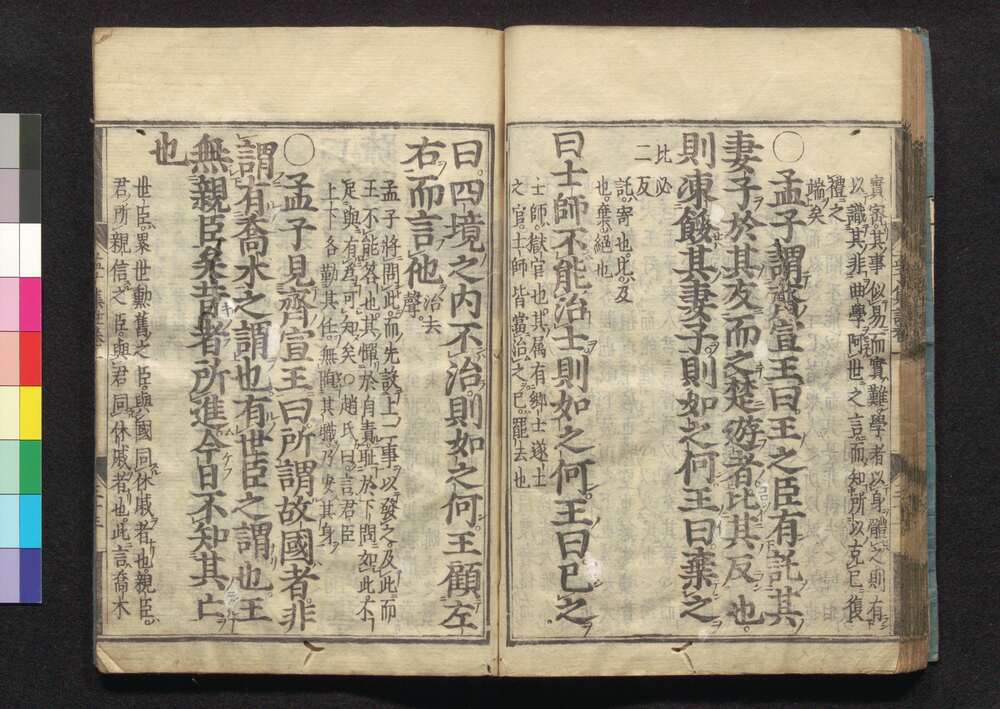 實密其事似易而實難學者以身體之則有
以識其非曲學阿世之言而知所以克己復
禮之
端矣
○孟子謂齊宣王曰王之臣有託其
妻子於其友而之楚遊者比其反也
則凍餒其妻子則如之何王曰棄之
比必
二反
託寄也比及
也棄絕也
曰士師不能治士則如之何王曰已之
士師獄官也其屬有鄉士遂士
之官士師皆當治之已罷去也
曰四境之內不治則如之何王顧左
右而言他
治去
聲
孟子將問此而先設上二事以發之及此而
王不能答也其憚於自責恥於下問如此不
足與有為可知矣○趙氏曰言君臣
上下各勤其任無墮其職乃安其身
○孟子見齊宣王曰所謂故國者非
謂有喬木之謂也有世臣之謂也王
無親臣矣昔者所進今日不知其亡
也
世臣累世勳舊之臣與國同休戚者也親臣
君所親信之臣與君同休戚者也此言喬木